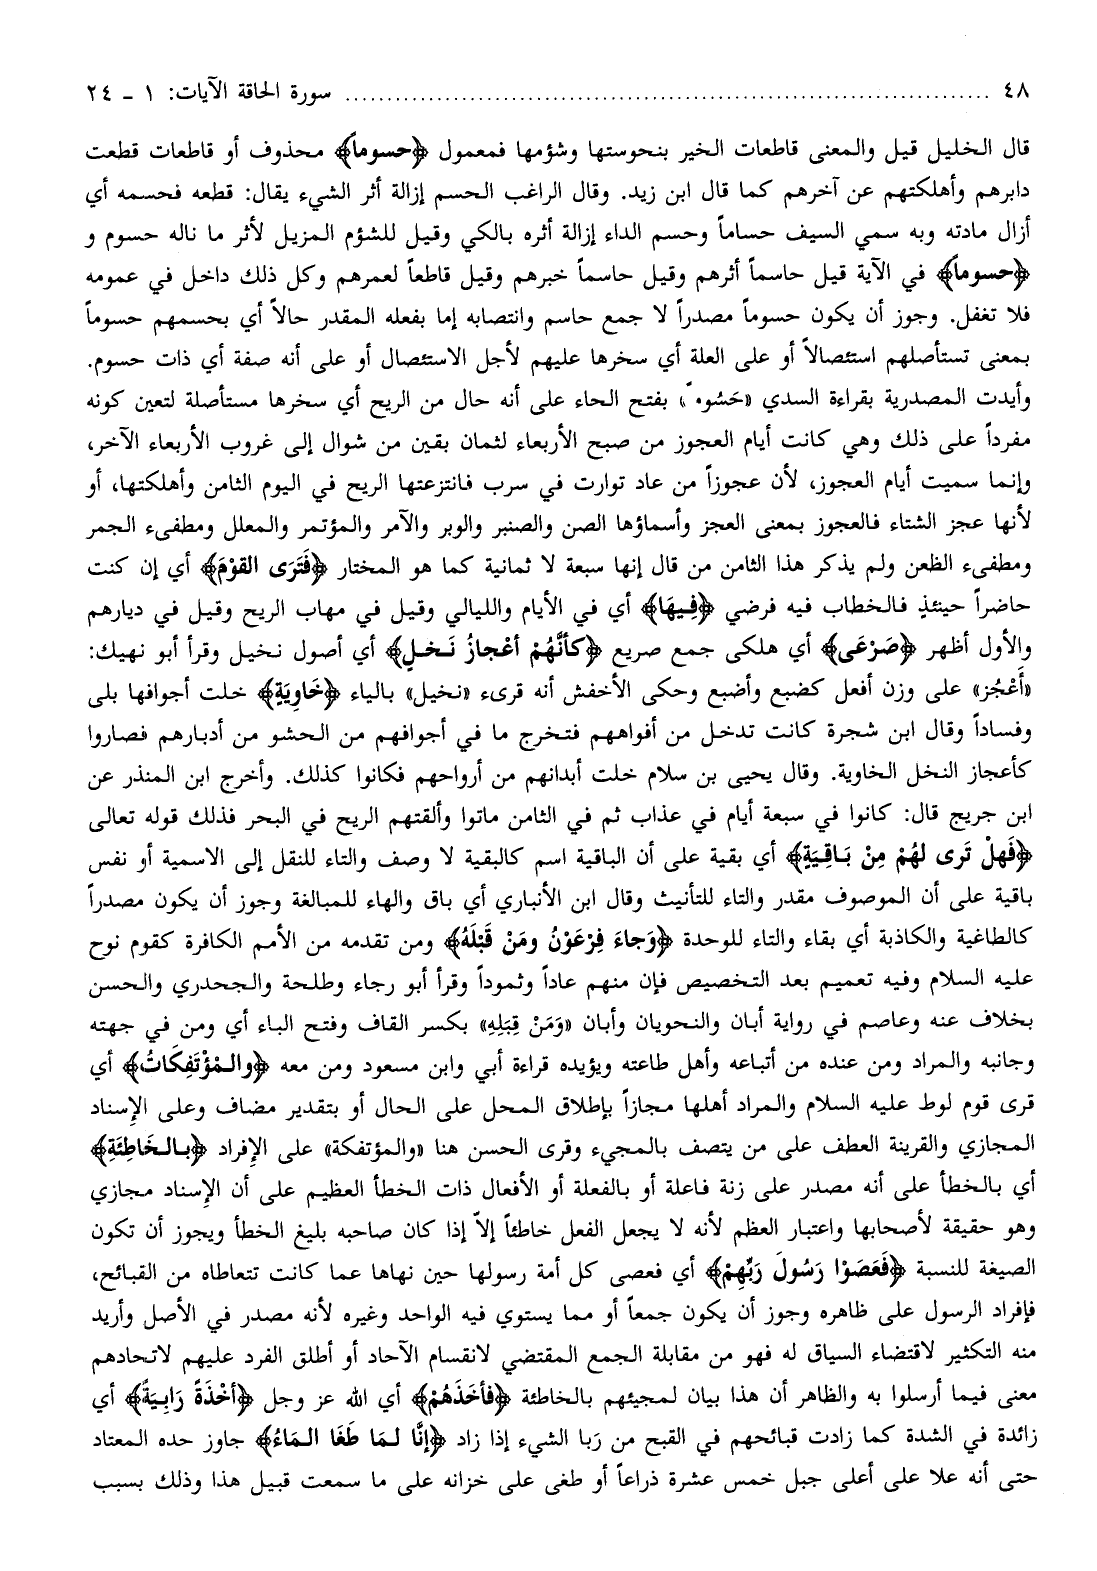 ٤٨ ..................................................................... سورة الحاقة الآيات: ١ - ٢٤
قال الخليل قيل والمعنى قاطعات الخير بنحوستها وشؤمها فمعمول ﴿حسوماً﴾ محذوف أو قاطعات قطعت
دابرهم وأهلكتهم عن آخرهم كما قال ابن زيد. وقال الراغب الحسم إزالة أثر الشيء يقال: قطعه فحسمه أي
أزال مادته وبه سمي السيف حساماً وحسم الداء إزالة أثره بالكي وقيل للشؤم المزيل لأثر ما ناله حسوم و
﴿حسوماً﴾ في الآية قيل حاسماً أثرهم وقيل حاسماً خبرهم وقيل قاطعاً لعمرهم وكل ذلك داخل في عمومه
فلا تغفل. وجوز أن يكون حسوماً مصدراً لا جمع حاسم وانتصابه إما بفعله المقدر حالاً أي بحسمهم حسوماً
بمعنى تستأصلهم استئصالاً أو على العلة أي سخرها عليهم لأجل الاستئصال أو على أنه صفة أي ذات حسوم.
وأيدت المصدرية بقراءة السدي «حَسُوماً» بفتح الحاء على أنه حال من الريح أي سخرها مستأصلة لتعين كونه
مفرداً على ذلك وهي كانت أيام العجوز من صبح الأربعاء لثمان بقين من شوال إلى غروب الأربعاء الآخر،
وإنما سميت أيام العجوز، لأن عجوزاً من عاد توارت في سرب فانتزعتها الريح في اليوم الثامن وأهلكتها، أو
لأنها عجز الشتاء فالعجوز بمعنى العجز وأسماؤها الصن والصنبر والوبر والآمر والمؤتمر والمعلل ومطفىء الجمر
ومطفىء الظعن ولم يذكر هذا الثامن من قال إنها سبعة لا ثمانية كما هو المختار ﴿فَتَرَى القوْمَ﴾ أي إن كنت
حاضراً حينئذٍ فالخطاب فيه فرضي ﴿فِيهَا﴾ أي في الأيام والليالي وقيل في مهاب الريح وقيل في ديارهم
والأول أظهر ﴿صَرْعَى﴾ أي هلكى جمع صريع ﴿كأنَّهُمْ أعْجازُ نَخلٍ﴾ أي أصول نخيل وقرأ أبو نهيك:
«أَعْجُز» على وزن أفعل كضبع وأضبع وحكى الأخفش أنه قرىء «نخيل» بالياء ﴿خَاوِيَةٍ﴾ خلت أجوافها بلى
وفساداً وقال ابن شجرة كانت تدخل من أفواههم فتخرج ما في أجوافهم من الحشو من أدبارهم فصاروا
كأعجاز النخل الخاوية. وقال يحيى بن سلام خلت أبدانهم من أرواحهم فكانوا كذلك. وأخرج ابن المنذر عن
ابن جريج قال: كانوا في سبعة أيام في عذاب ثم في الثامن ماتوا وألقتهم الريح في البحر فذلك قوله تعالى
﴿فَهلْ تَرى لهُمْ مِنْ بَاقِيَةٍ﴾ أي بقية على أن الباقية اسم كالبقية لا وصف والتاء للنقل إلى الاسمية أو نفس
باقية على أن الموصوف مقدر والتاء للتأنيث وقال ابن الأنباري أي باق والهاء للمبالغة وجوز أن يكون مصدراً
كالطاغية والكاذبة أي بقاء والتاء للوحدة ﴿وَجاءَ فِرْعَوْنُ ومَنْ قَبْلَهُ﴾ ومن تقدمه من الأمم الكافرة كقوم نوح
عليه السلام وفيه تعميم بعد التخصيص فإن منهم عاداً وثموداً وقرأ أبو رجاء وطلحة والجحدري والحسن
بخلاف عنه وعاصم في رواية أبان والنحويان وأبان «وَمَنْ قِبَلِهِ» بكسر القاف وفتح الباء أي ومن في جهته
وجانبه والمراد ومن عنده من أتباعه وأهل طاعته ويؤيده قراءة أبي وابن مسعود ومن معه ﴿والمُؤْتَفِكَاتُ﴾ أي
قرى قوم لوط عليه السلام والمراد أهلها مجازاً بإطلاق المحل على الحال أو بتقدير مضاف وعلى الإسناد
المجازي والقرينة العطف على من يتصف بالمجيء وقرى الحسن هنا «والمؤتفكة» على الإفراد ﴿بالخَاطِئَةِ﴾
أي بالخطأ على أنه مصدر على زنة فاعلة أو بالفعلة أو الأفعال ذات الخطأ العظيم على أن الإسناد مجازي
وهو حقيقة لأصحابها واعتبار العظم لأنه لا يجعل الفعل خاطئاً إلاّ إذا كان صاحبه بليغ الخطأ ويجوز أن تكون
الصيغة للنسبة ﴿فَعَصَوْا رَسُولَ رَبِّهِمْ﴾ أي فعصى كل أمة رسولها حين نهاها عما كانت تتعاطاه من القبائح،
فإفراد الرسول على ظاهره وجوز أن يكون جمعاً أو مما يستوي فيه الواحد وغيره لأنه مصدر في الأصل وأريد
منه التكثير لاقتضاء السياق له فهو من مقابلة الجمع المقتضي لانقسام الآحاد أو أطلق الفرد عليهم لاتحادهم
معنى فيما أرسلوا به والظاهر أن هذا بيان لمجيئهم بالخاطئة ﴿فأخَذَهُمْ﴾ أي الله عز وجل ﴿أخْذَةً رَابِيَةً﴾ أي
زائدة في الشدة كما زادت قبائحهم في القبح من رَبا الشيء إذا زاد ﴿إنَّا لمَا طَغَا الماءُ﴾ جاوز حده المعتاد
حتى أنه علا على أعلى جبل خمس عشرة ذراعاً أو طغى على خزانه على ما سمعت قبيل هذا وذلك بسبب